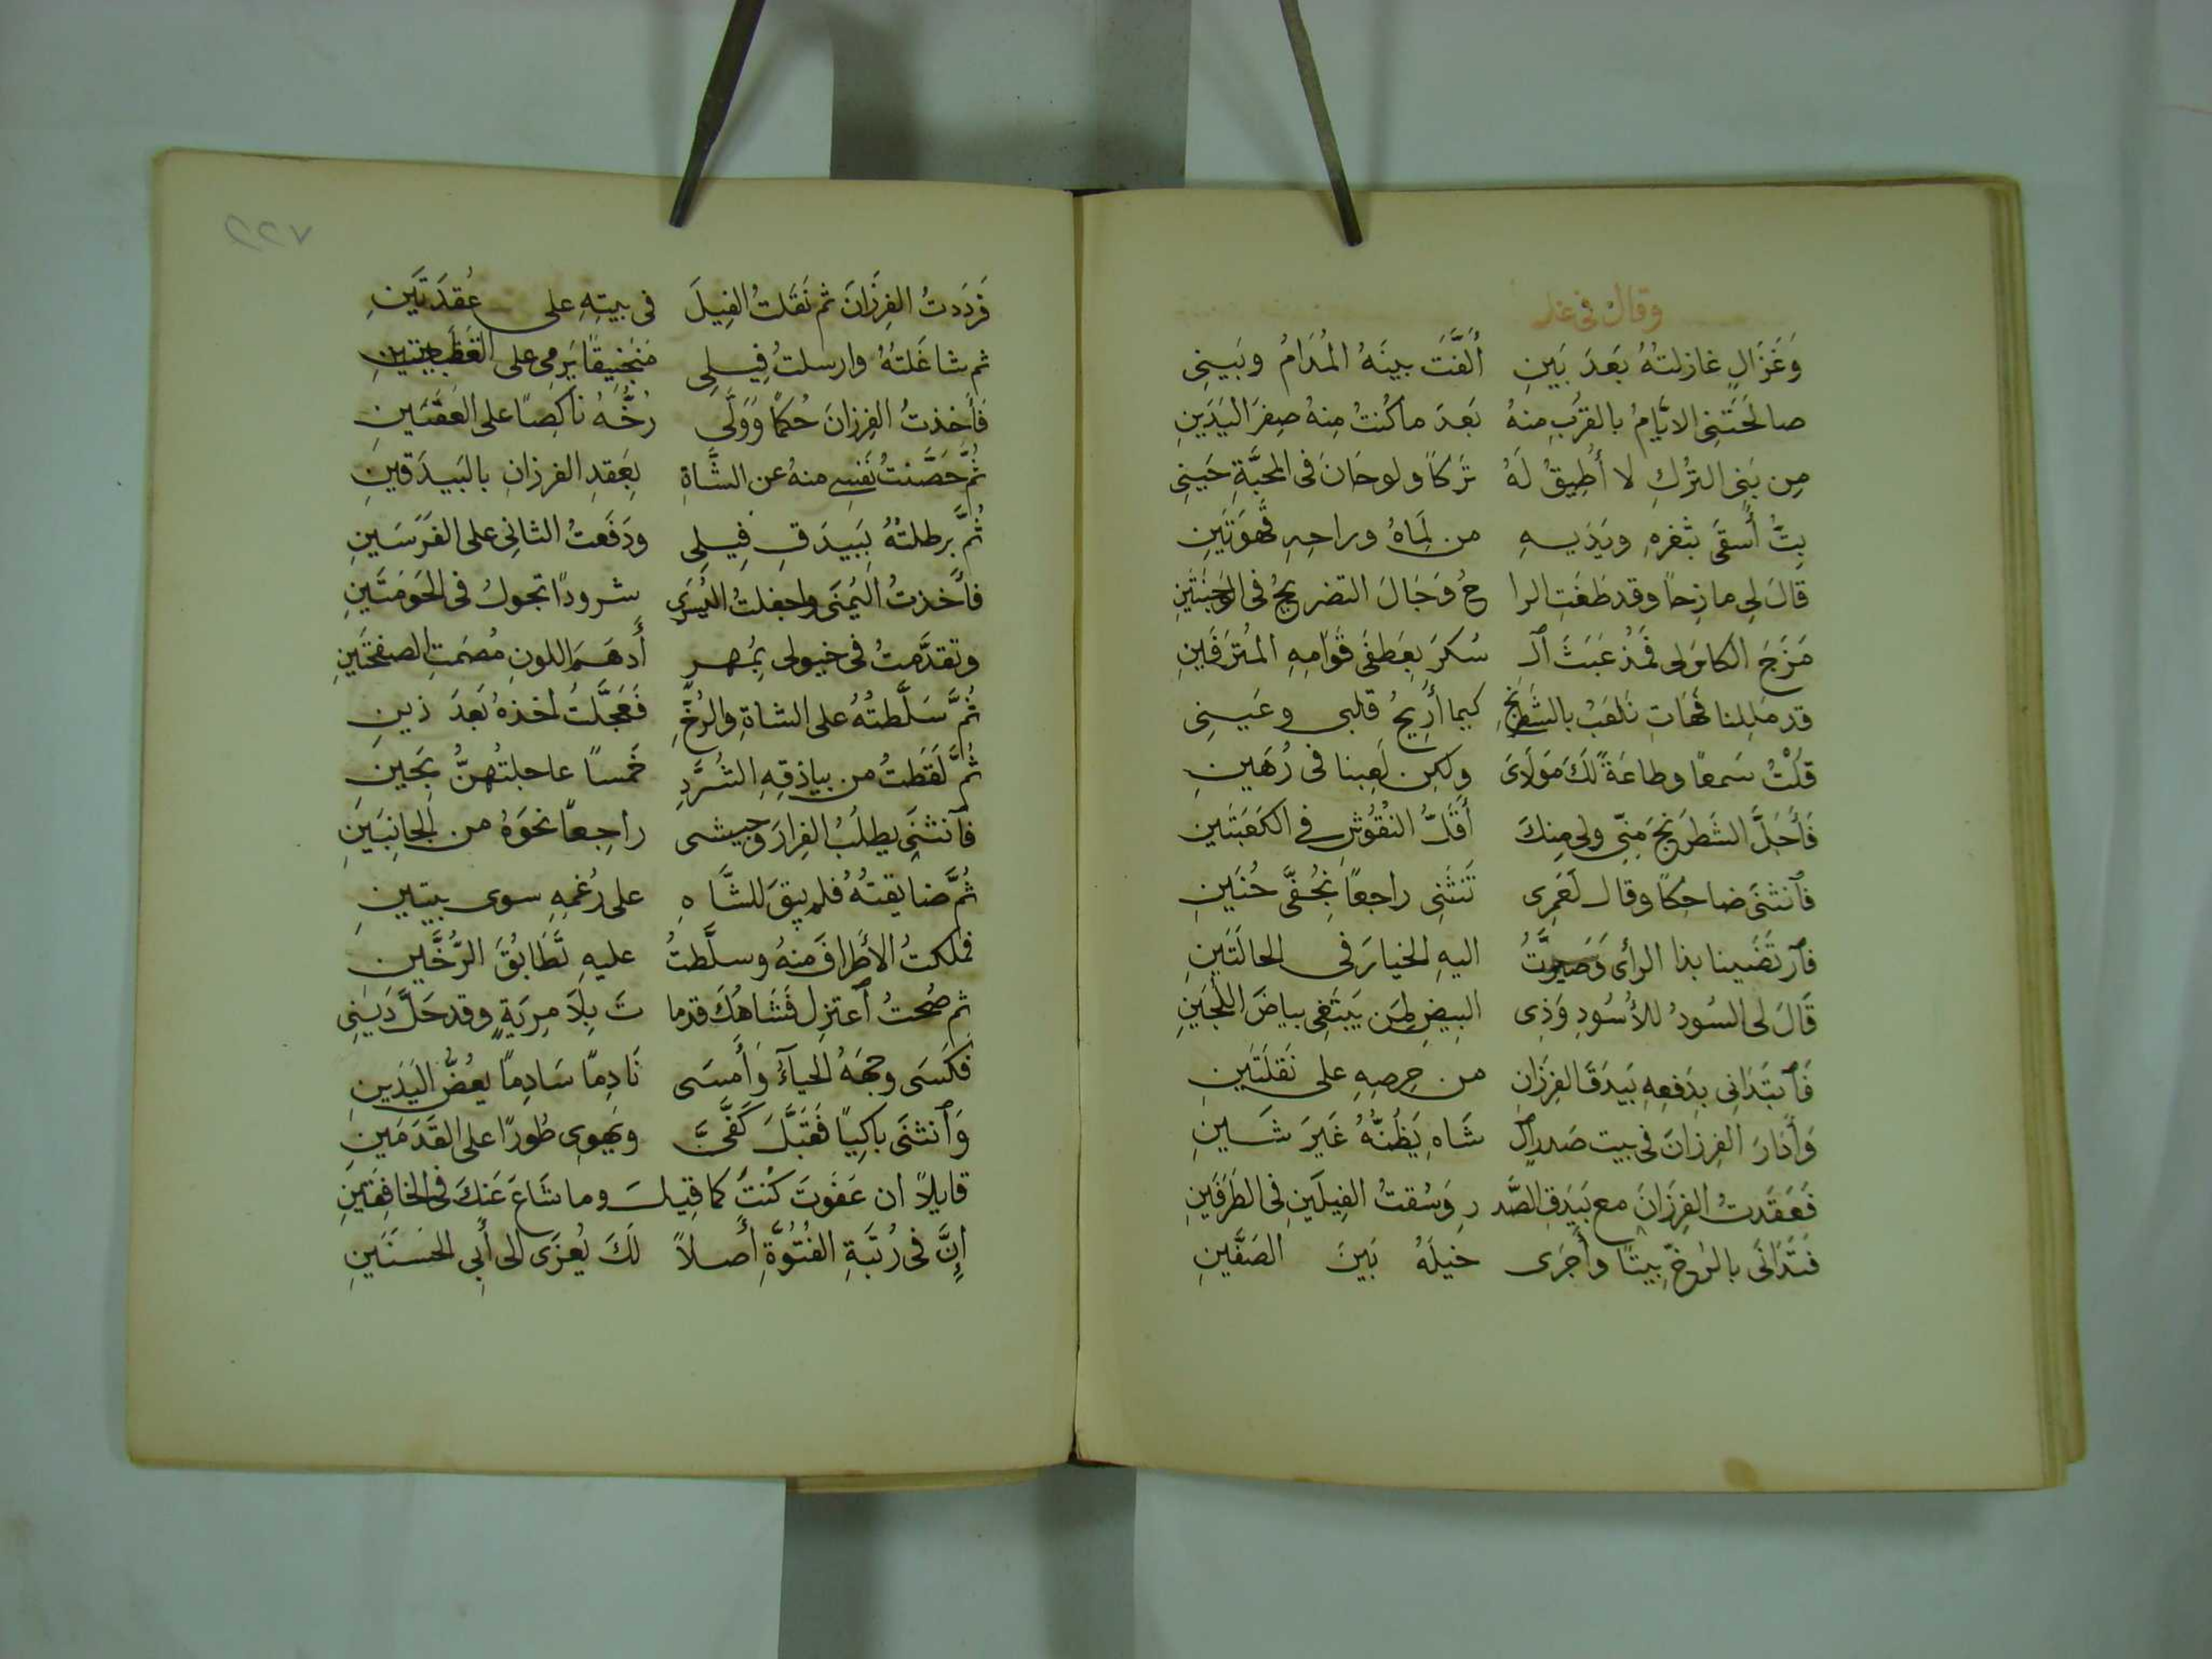 وقال في غلام
وَغَزَالٍ غازلتُهُ بَعدَ بَينِ أَلَّفَت بينَهُ المُدَامُ وبَينِى
صالَحَتَنِى الايَّامُ بالقُربِ منهُ بَعدَ ما كُنتُ مِنهُ صِفرَ اليَدَينِ
مِن بَنِى التُركِ لا أُطِيقُ لَهُ تَركاً ولو حَانَ فى المحبَّةِ حَينِى
بِتُّ أُسقَى بثَغرهِ ويَدَيهِ من لَماهُ وراحِهِ قهوَتَينِ
قالَ لى مازِحاً وقد طَفَتِ الرا حُ وَجَالَ التضريجُ فى الوَجنَتَينِ
مَزَجَ الكاس لى فَمُذ عَبَثَ الـ سُكرُ بِعَطفَى قَوَامِهِ المُترَفَينِ
قد مَلِلنا فَهَاتِ نَلعَبُ بالشَطرنجِ كيما أُرِيحُ قلبى وعَينِى
قُلْتُ سَمعًا وطاعَةً لَكَ مَولَاىَ ولكِن لَعِبنا فى رُهَينِ
فَأَجَلَّ الشَطرَنجَ مِنّى ولى مِنكَ أَقَلُّ النُقُوشِ فى الكَعَبَتَينِ
فَانثَنَى ضاحِكًا وقال لَعَمرِى تَنثَنِى راجعًا بِخُفَّى حُنَينِ
فَارتَضَينا بذا الرأى وَصَيَّرتُ اليهِ الخيارَ فى الحالتَينِ
قَالَ لى السُودُ للأُسُودِ وَذِى البيضِ لِمَن يَبتَغِى بياضَ اللُجَينِ
فَابتَدَانِى بِدَفعِهِ بَيدَقَ الفِرزَانِ من حِرصِهِ على نَقلَتَينِ
وَأَدَارَ الفِرزانَ فى بيت صَدرِ الـ شَاهِ يَظُنُّهُ غَيرَ شَينِ
فَعَقَدتُ الفِرزَانَ مع بَيدَقِ الصَّد رِ وَسُقتُ الفِيلَينِ فى الطَرَفَينِ
فَتَدَانَى بالرُخِّ بيتًا وأَجرَى خيلَهُ بَينَ الصَفَّينِ
٢٢٧
فَرَدَدتُ الفِرزَانَ ثم نَقَلتُ الفِيلَ فى بيتِهِ على عُقدَتَينِ
ثم شاغَلتُهُ وارسلتُ فِيلى مَنجَنِيقًا يَرمى على القَطبَتَينِ
فَأَخذتُ الفِرزانَ حُكمًا وَوَلَّى رُخُّهُ ناكِصًا على العَقبَينِ
ثُمَّ حَصَّنتُ نَفسِى منهُ عن الشَّاةِ بِعَقدِ الفرزانِ بالبَيدَقَينِ
ثُمَّ برطلتُهُ بِبَيدَقِ فِيلِى ودَفَعتُ الثانِى على الفَرَسَينِ
فأَخذتُ اليُمنَى واجفلتُ اليُسرَى شرودًا تجولُ فى الحَومَتَينِ
وتقدَّمتُ فى خيولى بِمُهرٍ أَدهَمِ اللونِ مُصمَتِ الصفحَتَينِ
ثُمَّ سَلَّطتُهُ على الشاةِ والرُخِّ فَعَجَّلتُ أخذهُ بَعدَ ذينِ
ثُمَّ لَقَطتُ من بياذقِهِ الشُرَّدِ خَمسًا عاجلتُهنَّ بِحَينِ
فَانثَنَى يطلبُ الفِرارَ وجَيشى راجِعًا نحوَهُ من الجانِبَينِ
ثُمَّ ضايقتُهُ فلم يبقَ للشَّاهِ على رُغمِهِ سوى بيتَينِ
فملكتُ الأطرافَ منهُ وسلَّطتُ عليهِ تَطَابُقَ الرُّخَّينِ
ثم صُحتُ اعتزِل فَشَاهُكَ قد ما تَ بِلَا مِريَةٍ وقد حَلَّ دَينِى
فكَسَى وجهَهُ الحياءُ وَأَمسَى نَادِمًا سَادِمًا يعَضُّ اليَدَينِ
وَانثنَى باكِيًا فقَبَّلَ كَفَّىَّ ويَهوِى طَورًا على القَدَمَينِ
قايلاً ان عَفَوتَ كُنتَ كما قِيلَ وما شَاعَ عَنكَ فى الخافِقَينِ
إِنَّ فى رُتبَةِ الفُتُوَّةِ أَصلاً لَكَ يُعزَى الى أَبِى الحَسَنَينِ